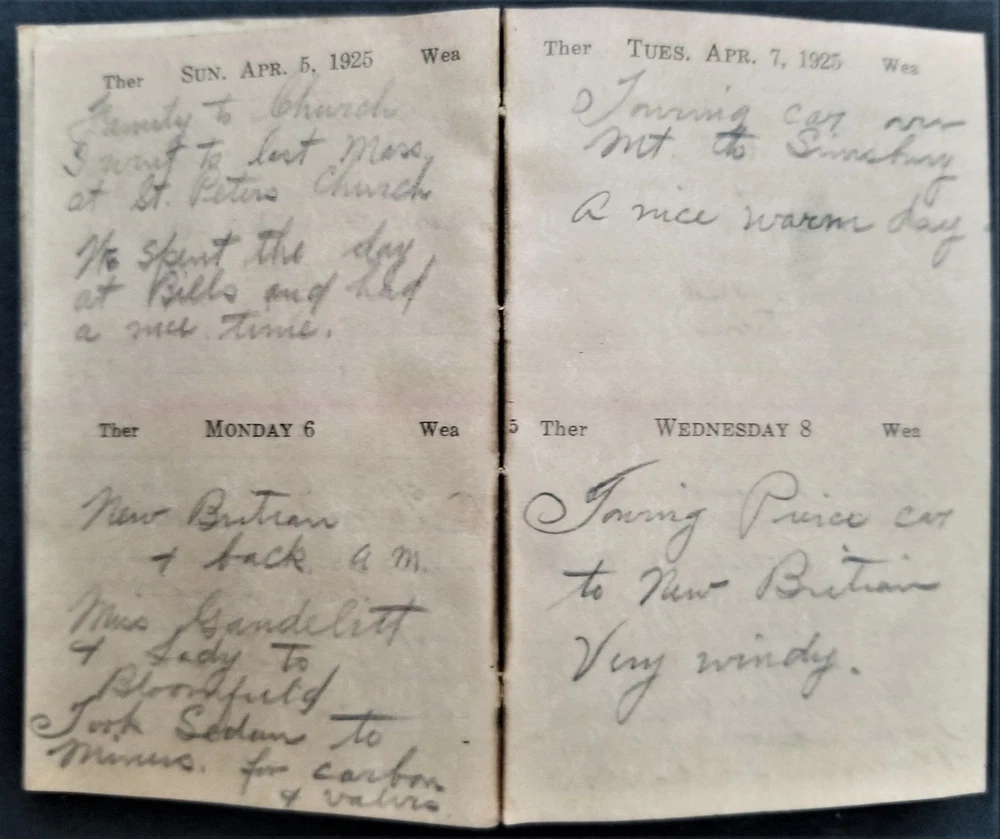 Ther SUN. APR. 5, 1925 Wea
Family to Church
I went to last Mass,
at St. Peters Church
We spent the day
at Bills and had
a nice time.
Ther MONDAY 6 Wea
New Britian
+ back a m.
Miss Gandelitt
+ Lady to
Bloomfield
Took Sedan to
Miners. for carbon
+ valves
Ther TUES. APR. 7, 1925 Wea
Touring car over
Mt. to Simsbury
A nice warm day
5 Ther WEDNESDAY 8 Wea
Touring Pierce car
to New Britian
Very windy.